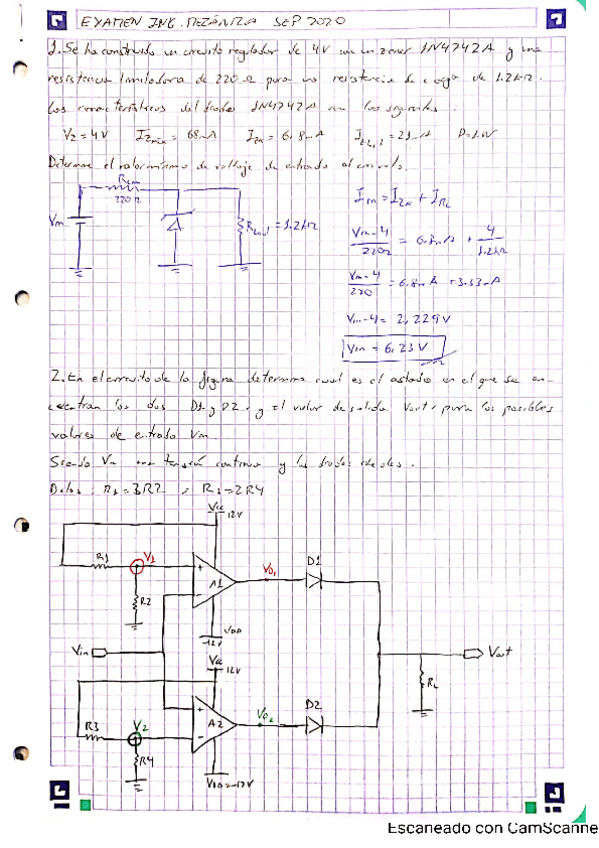 EXAMEN ING. MECÁNICA SEP 2020
1. Se ha construido un circuito regulador de 4V con un zener 1N4742A y una
resistencia limitadora de 220Ω para una resistencia de carga de 1.2kΩ.
Las características del diodo 1N4742A son las siguientes:
Vz = 4V Izmax = 68mA Izk = 6.8mA P=1W
Determine el valor mínimo de voltaje de entrada al circuito.
Rlim
220Ω
Vin
Rload = 1.2kΩ
Iin = Izk + IRL
Vin-4/220Ω = 6.8mA + 4/1.2kΩ
Vin-4/220 = 6.8mA + 3.33mA
Vin-4 = 2,229V
Vin = 6,23V
2. En el circuito de la figura determina cual es el estado en el que se en-
cuentran los dos D1 y D2, y el valor de salida Vout, para los posibles
valores de entrada Vin.
Siendo Vin una tensión continua y los diodos ideales.
Datos: R1=3R2 ; R3=2R4
Vcc 12V
R1
V1
R2
A1
VO1
D1
VDD
-12V
Vin
Vcc 12V
Vout
RL
R3
V2
R4
A2
VO2
D2
VDD=-12V
Escaneado con CamScanne